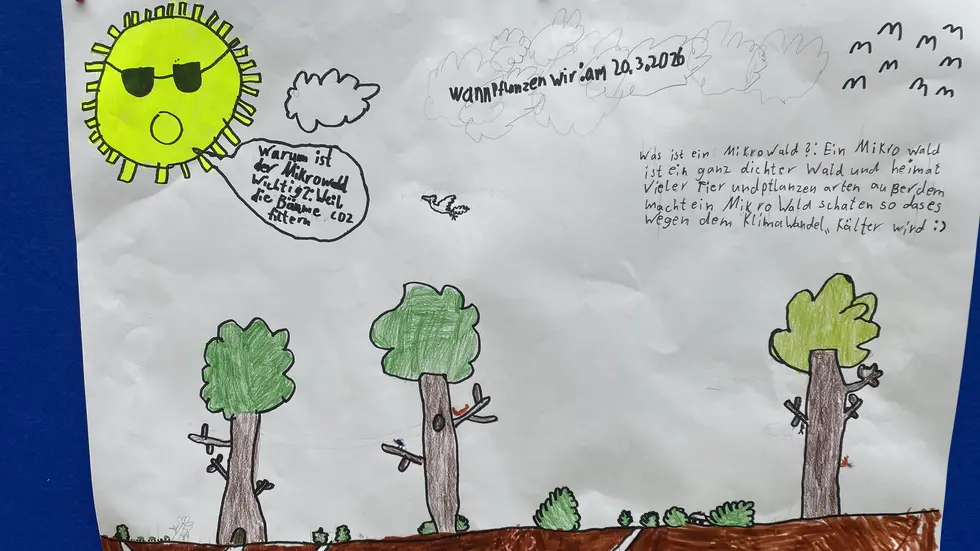 wann Pflanzen wir: am 20.3.2026
Warum ist
der Mikrowald
wichtig?: Weil
die Bäume CO2
filtern
Was ist ein Mikrowald?: Ein Mikro wald
ist ein ganz dichter Wald und heimat
vieler Tier und pflanzen arten außerdem
macht ein Mikro Wald schaten so das es
wegen dem Klima Wandel„ Kälter wird :)